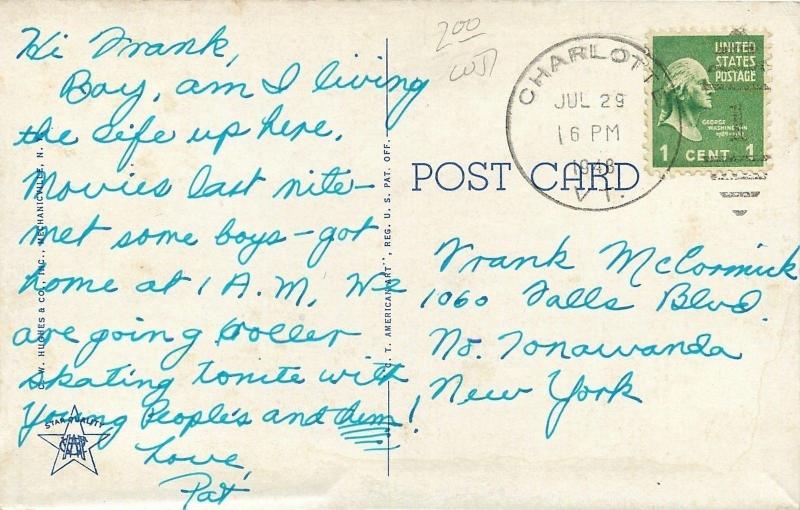 Hi Frank,
Boy, am I living
the life up here.
Movies last nite -
met some boys - got
home at 1 A.M. We
are going roller
skating tonite with
Young People's and them!
Love,
Pat
C. W. HUGHES & CO., INC., MECHANICVILLE, N. Y.
STAR QUALITY
C. T. AMERICAN ART", REG. U. S. PAT. OFF.
200
POST CARD
CHARLOTTE
JUL 29
6 PM
1948
VT.
UNITED
STATES
POSTAGE
GEORGE
WASHINGTON
1 CENT 1
Frank McCormick
1060 Falls Blvd.
No. Tonawanda
New York